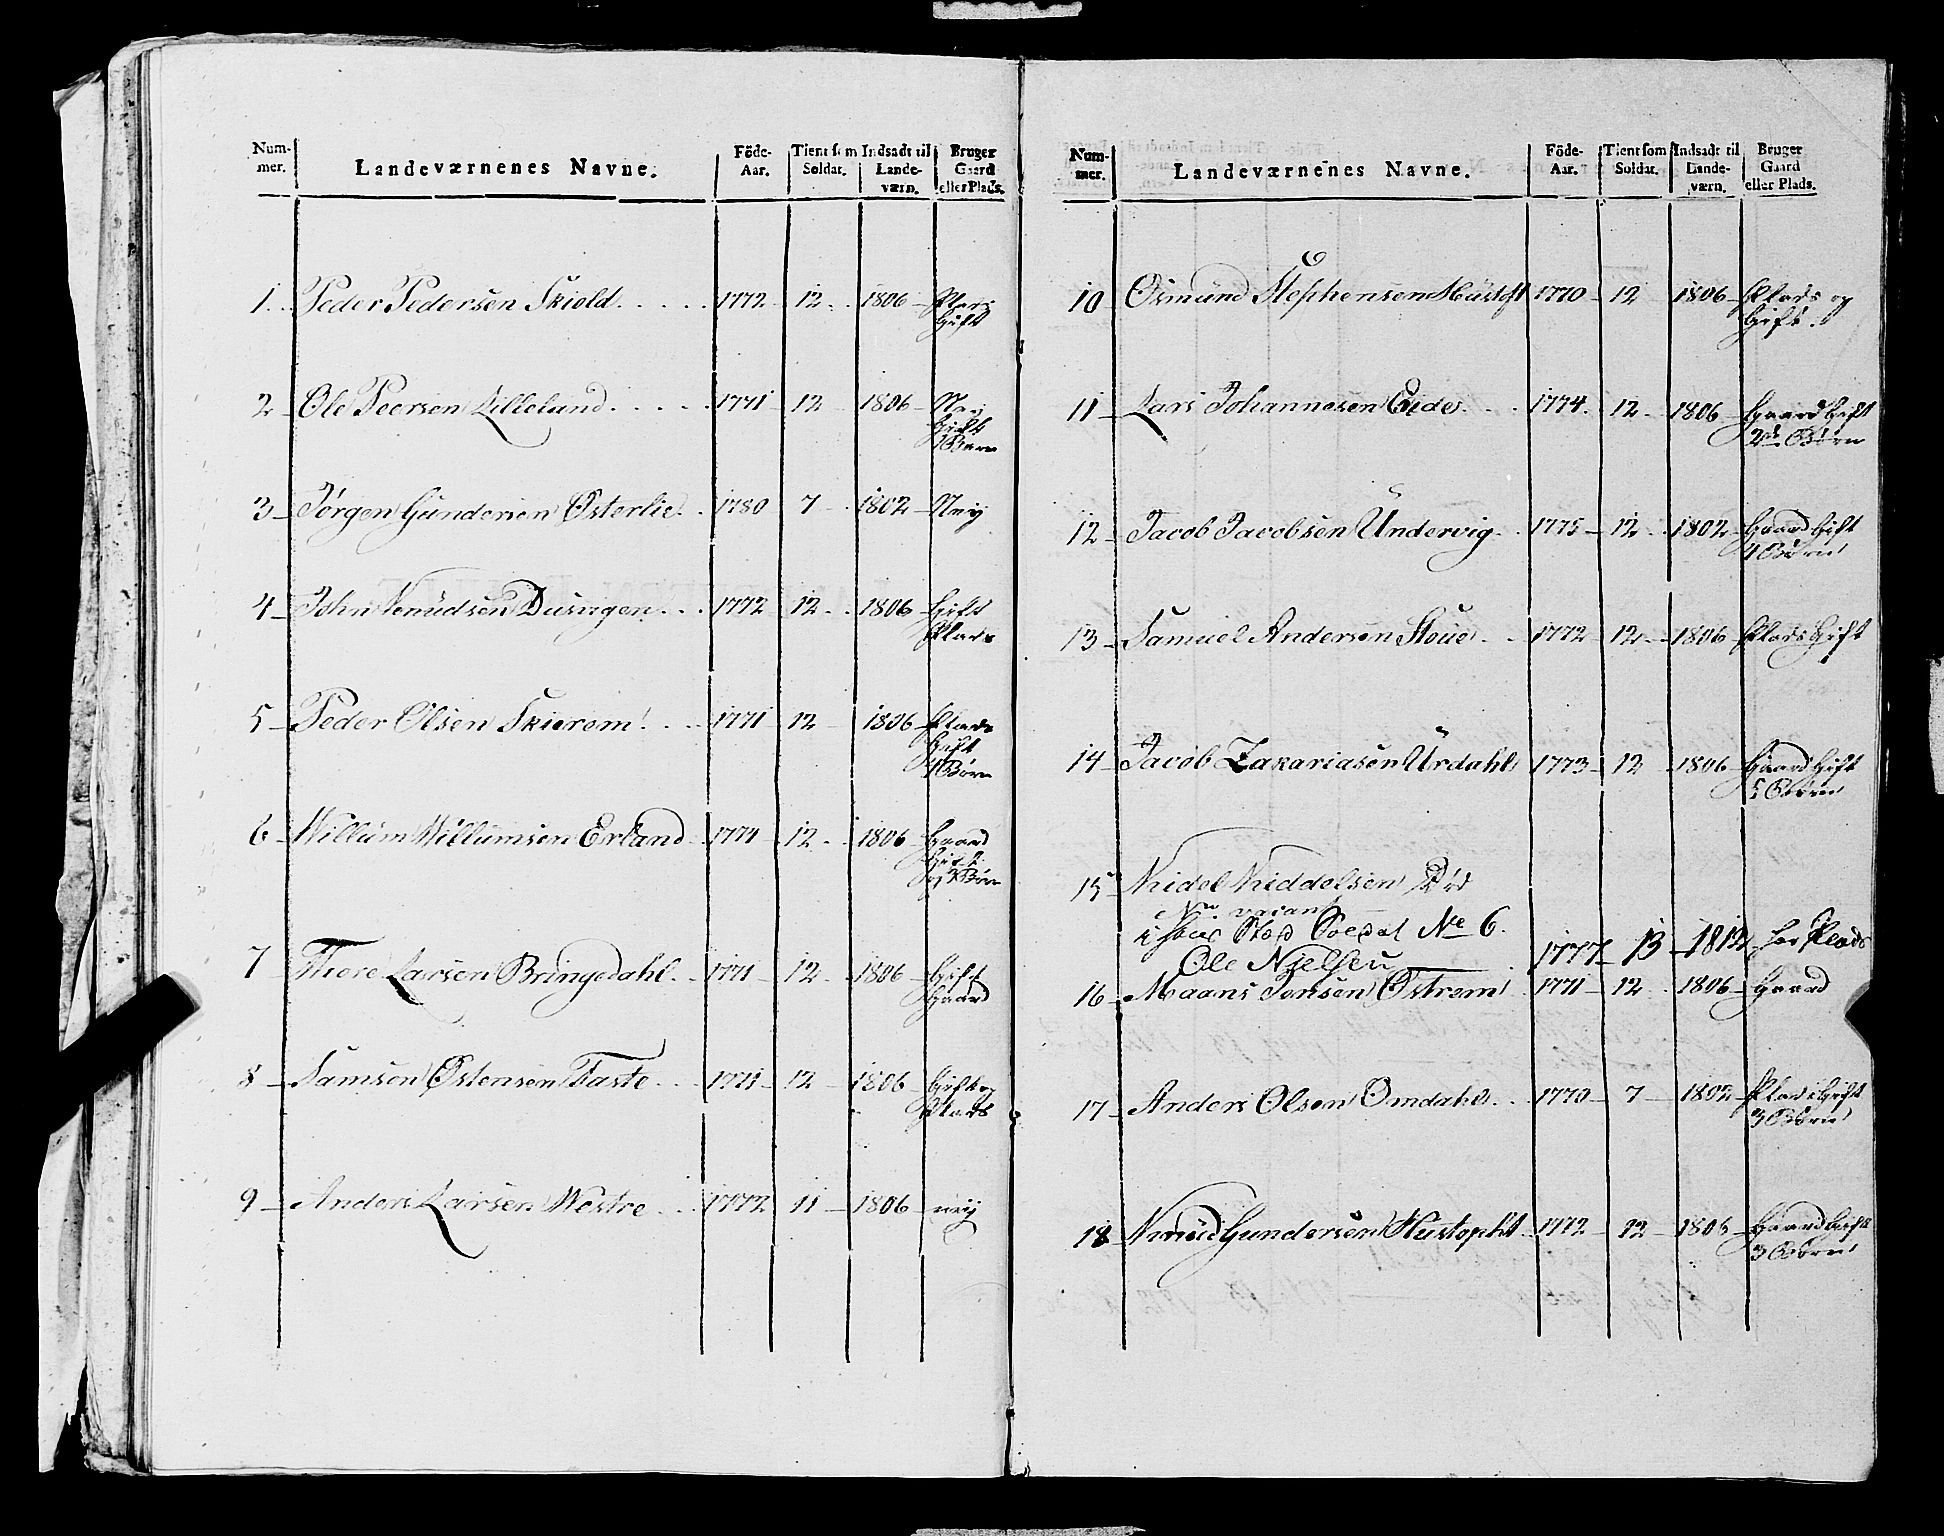 Num-mer. Landeværnenes Navne. Föde-Aar. Tient som Soldat. Indsadt til Lande-værn. Bruger Gaard eller Plads.
1. Peder Pedersen Skiold 1772 12 1806 Plads
Gift
2 Ole Peersen Lillelund 1771 12 1806 Ney
Gift
1 Barn
3 Jørgen Gundersen Østerlie 1780 7 1802 Ney
4 John Knudsen Dusingen 1772 12 1806 Gift
Plads
5 Peder Olsen Skierem 1771 12 1806 Plads
Gift
4 Børn
6 Willum Willumsen Erland 1771 12 1806 Gaard
Gift
og 3 Børn
7 Thore Larsen Bringedahl 1771 12 1806 Gift
Gaard
8 Samson Østensen Faste 1771 12 1806 Gift og
Plads
9 Anders Larsen Westre 1772 11 1806 ney
Num-mer. Landeværnenes Navne. Föde-Aar. Tient som Soldat. Indsadt til Lande-værn. Bruger Gaard eller Plads.
10 Osmund Stephensen Hustoft 1770 12 1806 Plads og
Gift.
11 Lars Johannesen Eede 1774 12 1806 Gaard Gift
2de Børn
12 Jacob Jacobsen Undervig 1775 12 1802 Gaard Gift
4 Børn
13 Samuel Andersen Stoue 1772 12 1806 Plads Gift
14 Jacob Zakariasen Urdahl 1773 12 1806 Gaard Gift
5 Børn
15 Kidel Kiddelsen Død
vacant
i hans Stæd Soldat No 6.
Ole Nielsen 1777 13 1812 har Plads
16 Maans Jonsen Østrem 1771 12 1806 Gaard
17 Anders Olsen Omdahl 1770 7 1802 Plads Gift
3 Børn
18 Knud Gundersen Hustopht 1772 12 1806 Gaard Gift
3 Børn